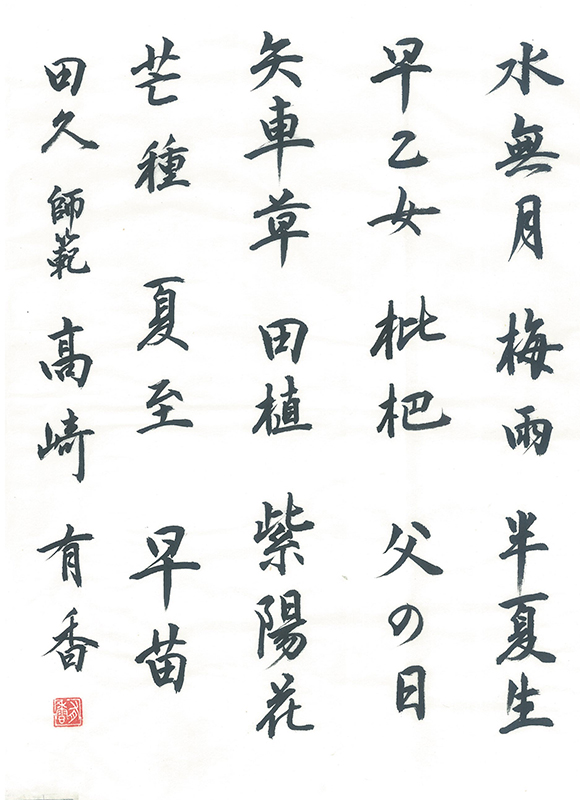 水無月 梅雨 半夏生
早乙女 枇杷 父の日
矢車草 田植 紫陽花
芒種 夏至 早苗
田久 師範 高崎 有香